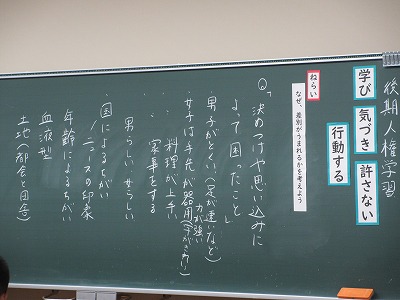 後期人権学習
学び 気づき 許さない
行動する
ねらい
なぜ、差別がうまれるかを考えよう
Q、決めつけや思い込みに
よって困ったこと
男子がとくい(足が速いなど)
力が強い
女子は手先が器用
料理が上手
家事をする
男らしい、女らしい
国によるちがい
ニュースの印象
年齢によるちがい
血液型
土地(都会と田舎)